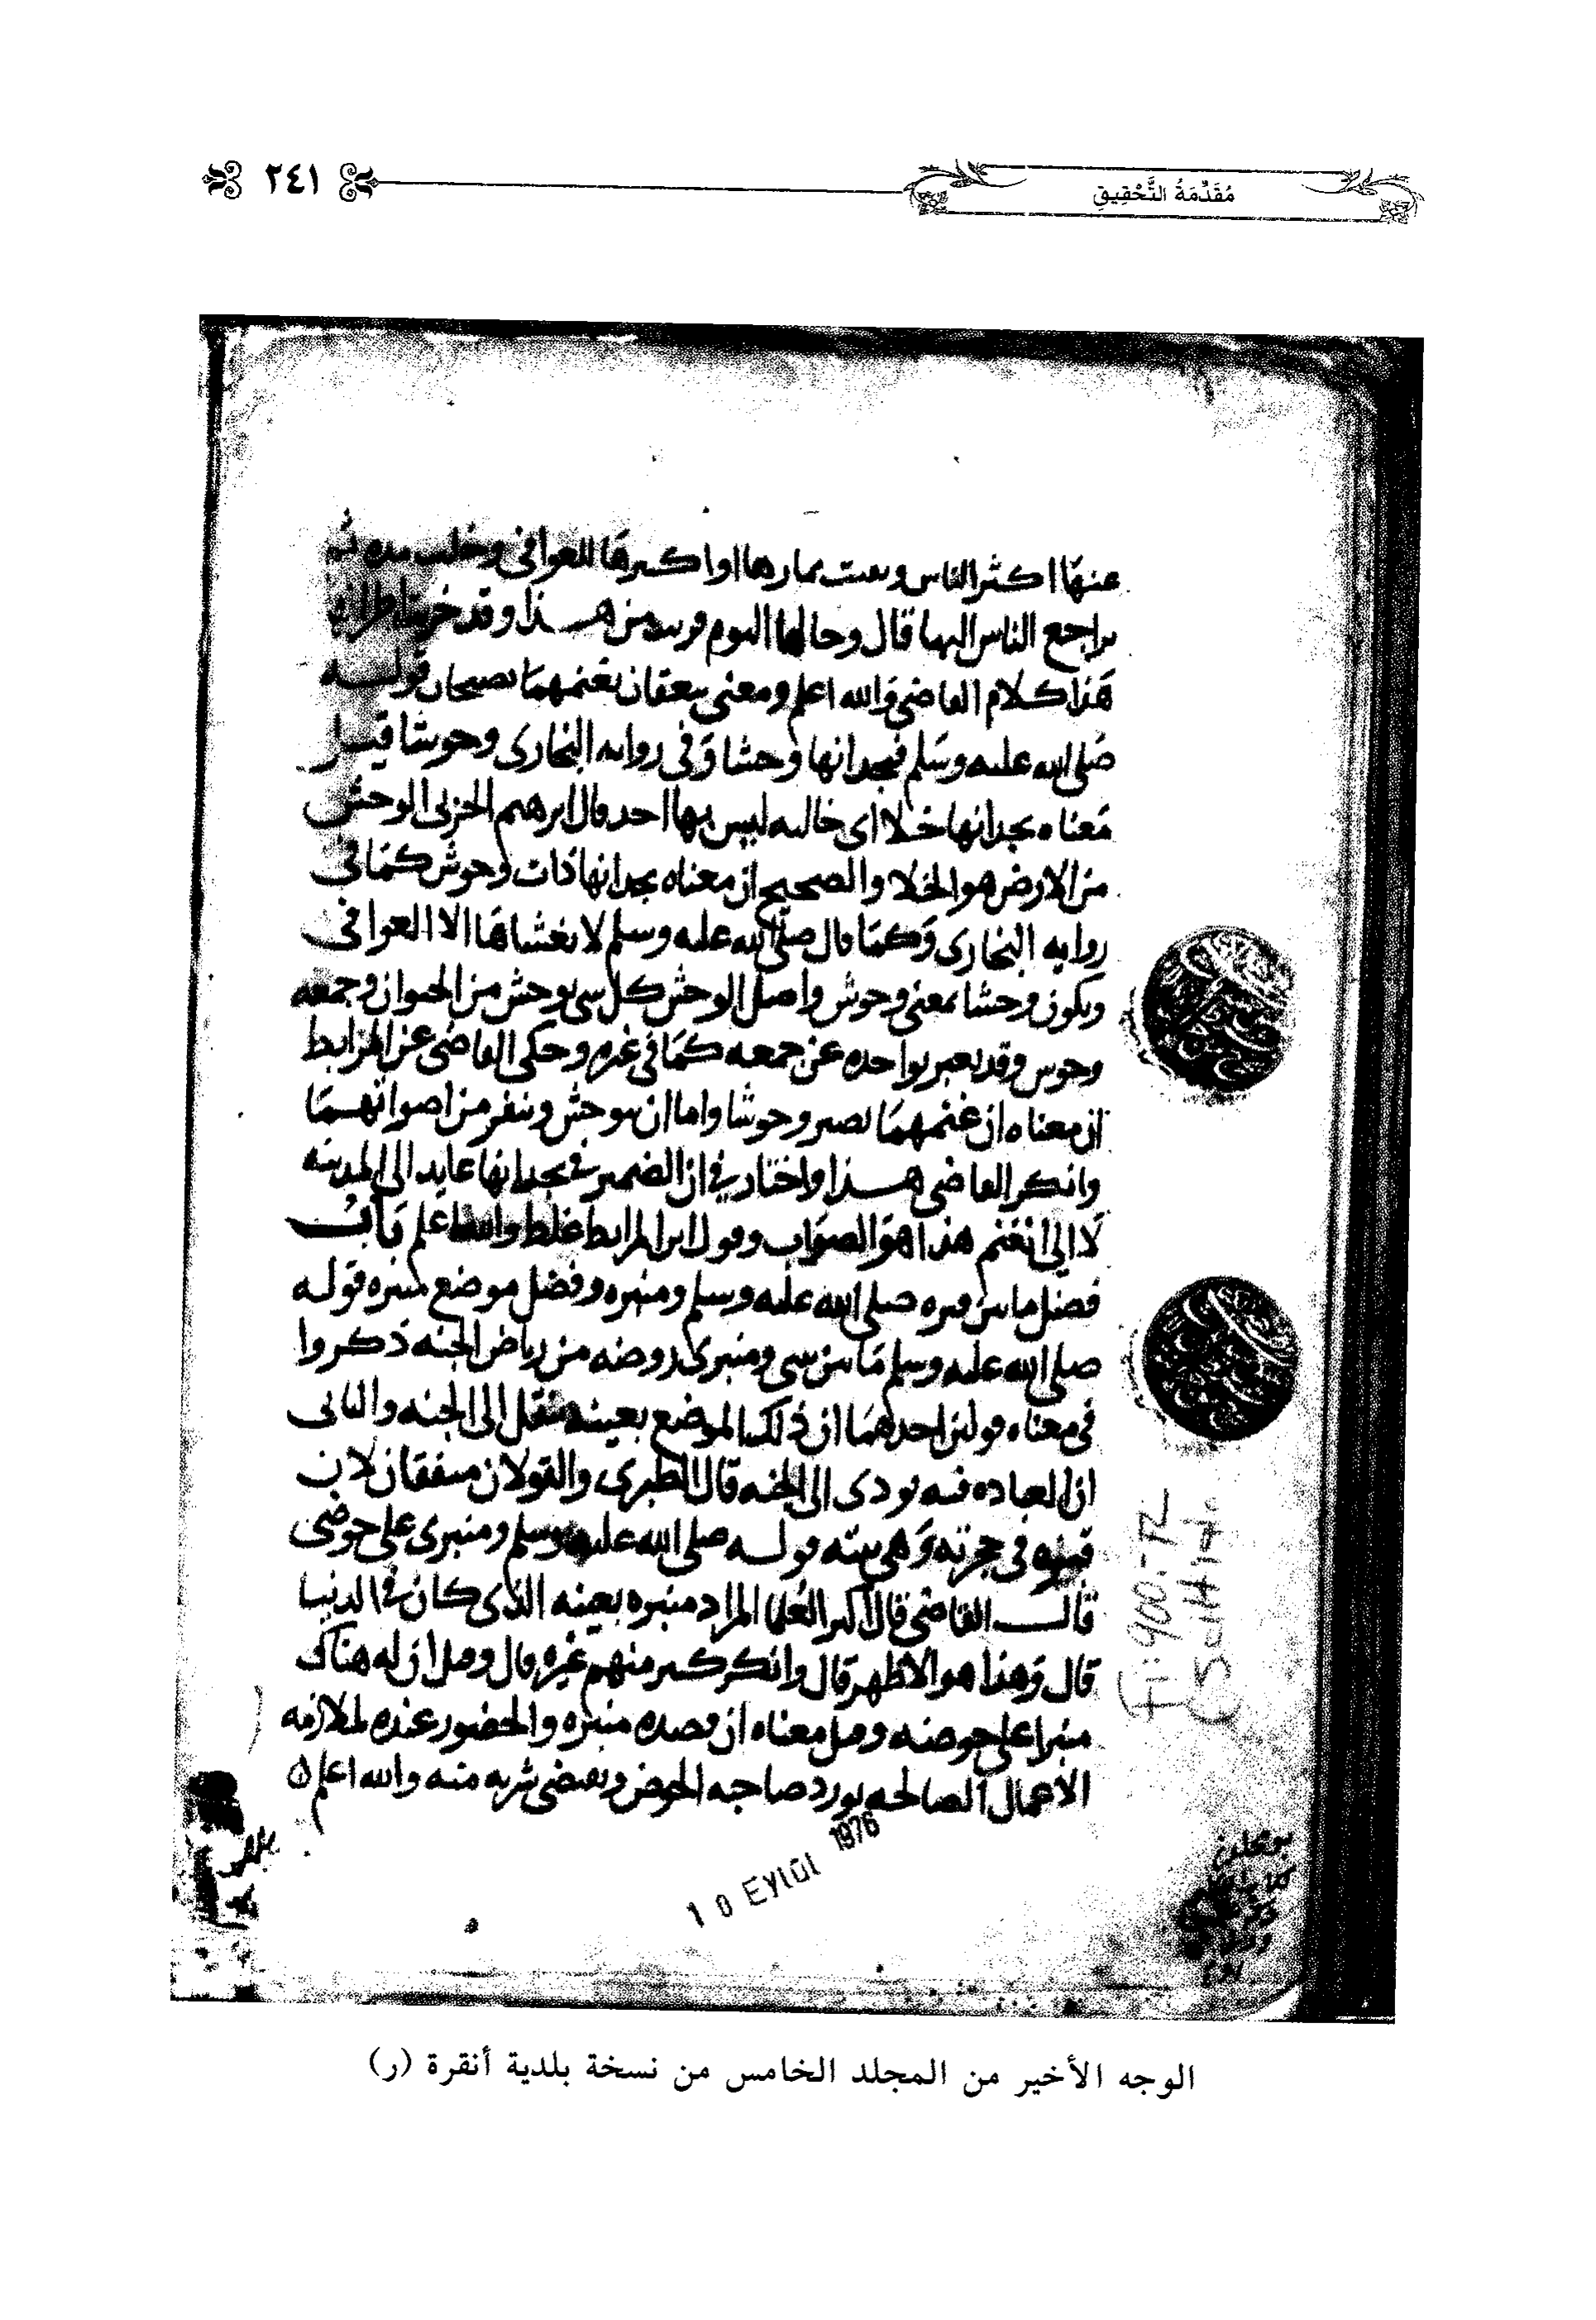 مُقَدِّمَةُ التَّحْقِيقِ
٢٤١
عنها اكثر الناس وبقيت ثمارها او اكثرها للعوافي وخلت مده ثم
تراجع الناس اليها قال وحالها اليوم قريب من هذا وقد خربت اطرافها
هذا كلام القاضي والله اعلم ومعنى ينعقان بغنمهما يصيحان قوله
صلى الله عليه وسلم فيجدانها وحشا وفي رواية البخاري وحوشا قيل
معناه يجدانها خلا اي خاليه ليس بها احد قال ابرهيم الحربي الوحش
من الارض هو الخلا والصحيح ان معناه يجدانها ذات وحوش كما في
رواية البخاري وكما قال صلى الله عليه وسلم لا يغشاها الا العوافي
ويكون وحشا بمعنى وحوش واصل الوحش كل شي توحش من الحيوان وجمعه
وحوش وقد يعبر بواحده عن جمعه كما في غيره وحكى القاضي عن ابن المرابط
ان معناه ان غنمهما تصير وحوشا واما ان تتوحش وتنفر من اصواتهما
وانكر القاضي هذا واختار ان الضمير في يجدانها عايد الى المدينه
لا الى الغنم هذا هو الصواب وقول ابن المرابط غلط والله اعلم باب
فضل ما بين قبره صلى الله عليه وسلم ومنبره وفضل موضع منبره قوله
صلى الله عليه وسلم ما بين بيتي ومنبري روضه من رياض الجنه ذكروا
في معناه قولين احدهما ان ذلك الموضع بعينه ينقل الى الجنه والثاني
ان العباده فيه تودي الى الجنه قال الطبري والقولان متفقان لان
قبره في حجرته وهي بيته قوله صلى الله عليه وسلم ومنبري على حوضي
قال القاضي قال اكثر العلما المراد منبره بعينه الذي كان في الدنيا
قال وهذا هو الاظهر قال وانكر كثير منهم غيره قال وقيل ان له هناك
منبرا على حوضه وقيل معناه ان قصده منبره والحضور عنده لملازمه
الاعمال الصالحه يورد صاحبه الحوض ويقتضي شربه منه والله اعلم
10 Eylül 1976
الوجه الأخير من المجلد الخامس من نسخة بلدية أنقرة (ر)